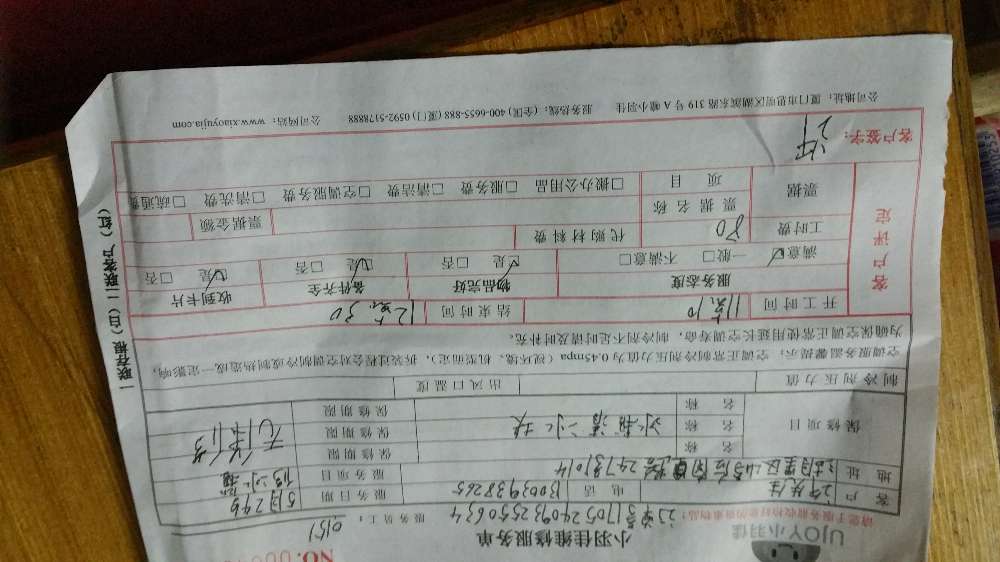 UJOY小羽佳
小羽佳维修服务单
NO.
请您于服务前收拾好您的贵重物品!
服务员工: 0151
客户 电话 13003938265 服务日期 5月29日
地址 服务项目
保修项目 名称 保修期限
名称 保修期限
名称 保修期限
制冷剂压力值 出风口温度
空调服务温馨提示:空调正常制冷剂压力值为0.45mpa(视环境、机型而定),拆装过程会对空调制冷或制热造成一定影响,
为确保空调正常使用延长空调寿命,制冷剂不足时请及时补充。
开工时间 11点10 结束时间 12点30
客户评定
服务态度 物品完好 备件齐全 收到卡片
满意☑ 一般□ 不满意□ ☑是 □否 ☑是 □否 ☑是 □否
工时费 80 代购材料费
票据 票据名称 票据金额
项目 □搬办公用品 □服务费 □清洁费 □空调服务费 □清洗费 □疏通费
客户签字:
公司地址:厦门市思明区湖滨东路319号A幢小羽佳 服务热线:(全国)400-6655-888 (厦门)0592-5178888 公司网站:www.xiaoyujia.com
一联存根(白)二联客户(红)